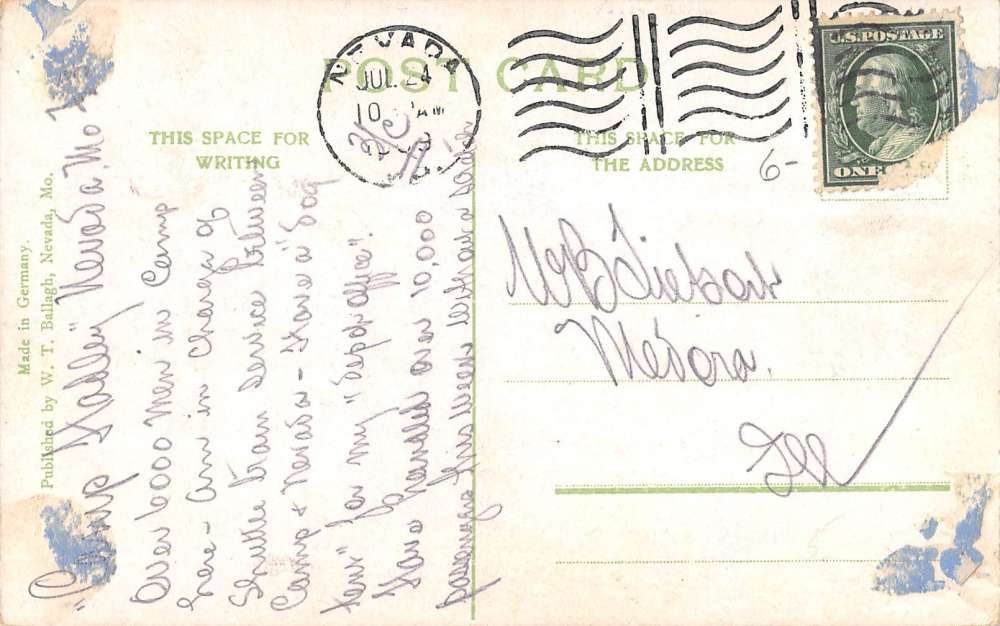 POST CARD
THIS SPACE FOR
WRITING
THIS SPACE FOR
THE ADDRESS
NEVADA
JUL 24
10 AM
U.S. POSTAGE
ONE
6-
Made in Germany.
Published by W. T. Ballagh, Nevada, Mo.
"Camp Hadley" Nevada, Mo
Over 6000 men in Camp
here - am in charge of
Shuttle train service between
Camp & Nevada - Have a "dog
tent" for my "depot office".
Have handled over 10,000
passengers this week without a
Medora.
Ill